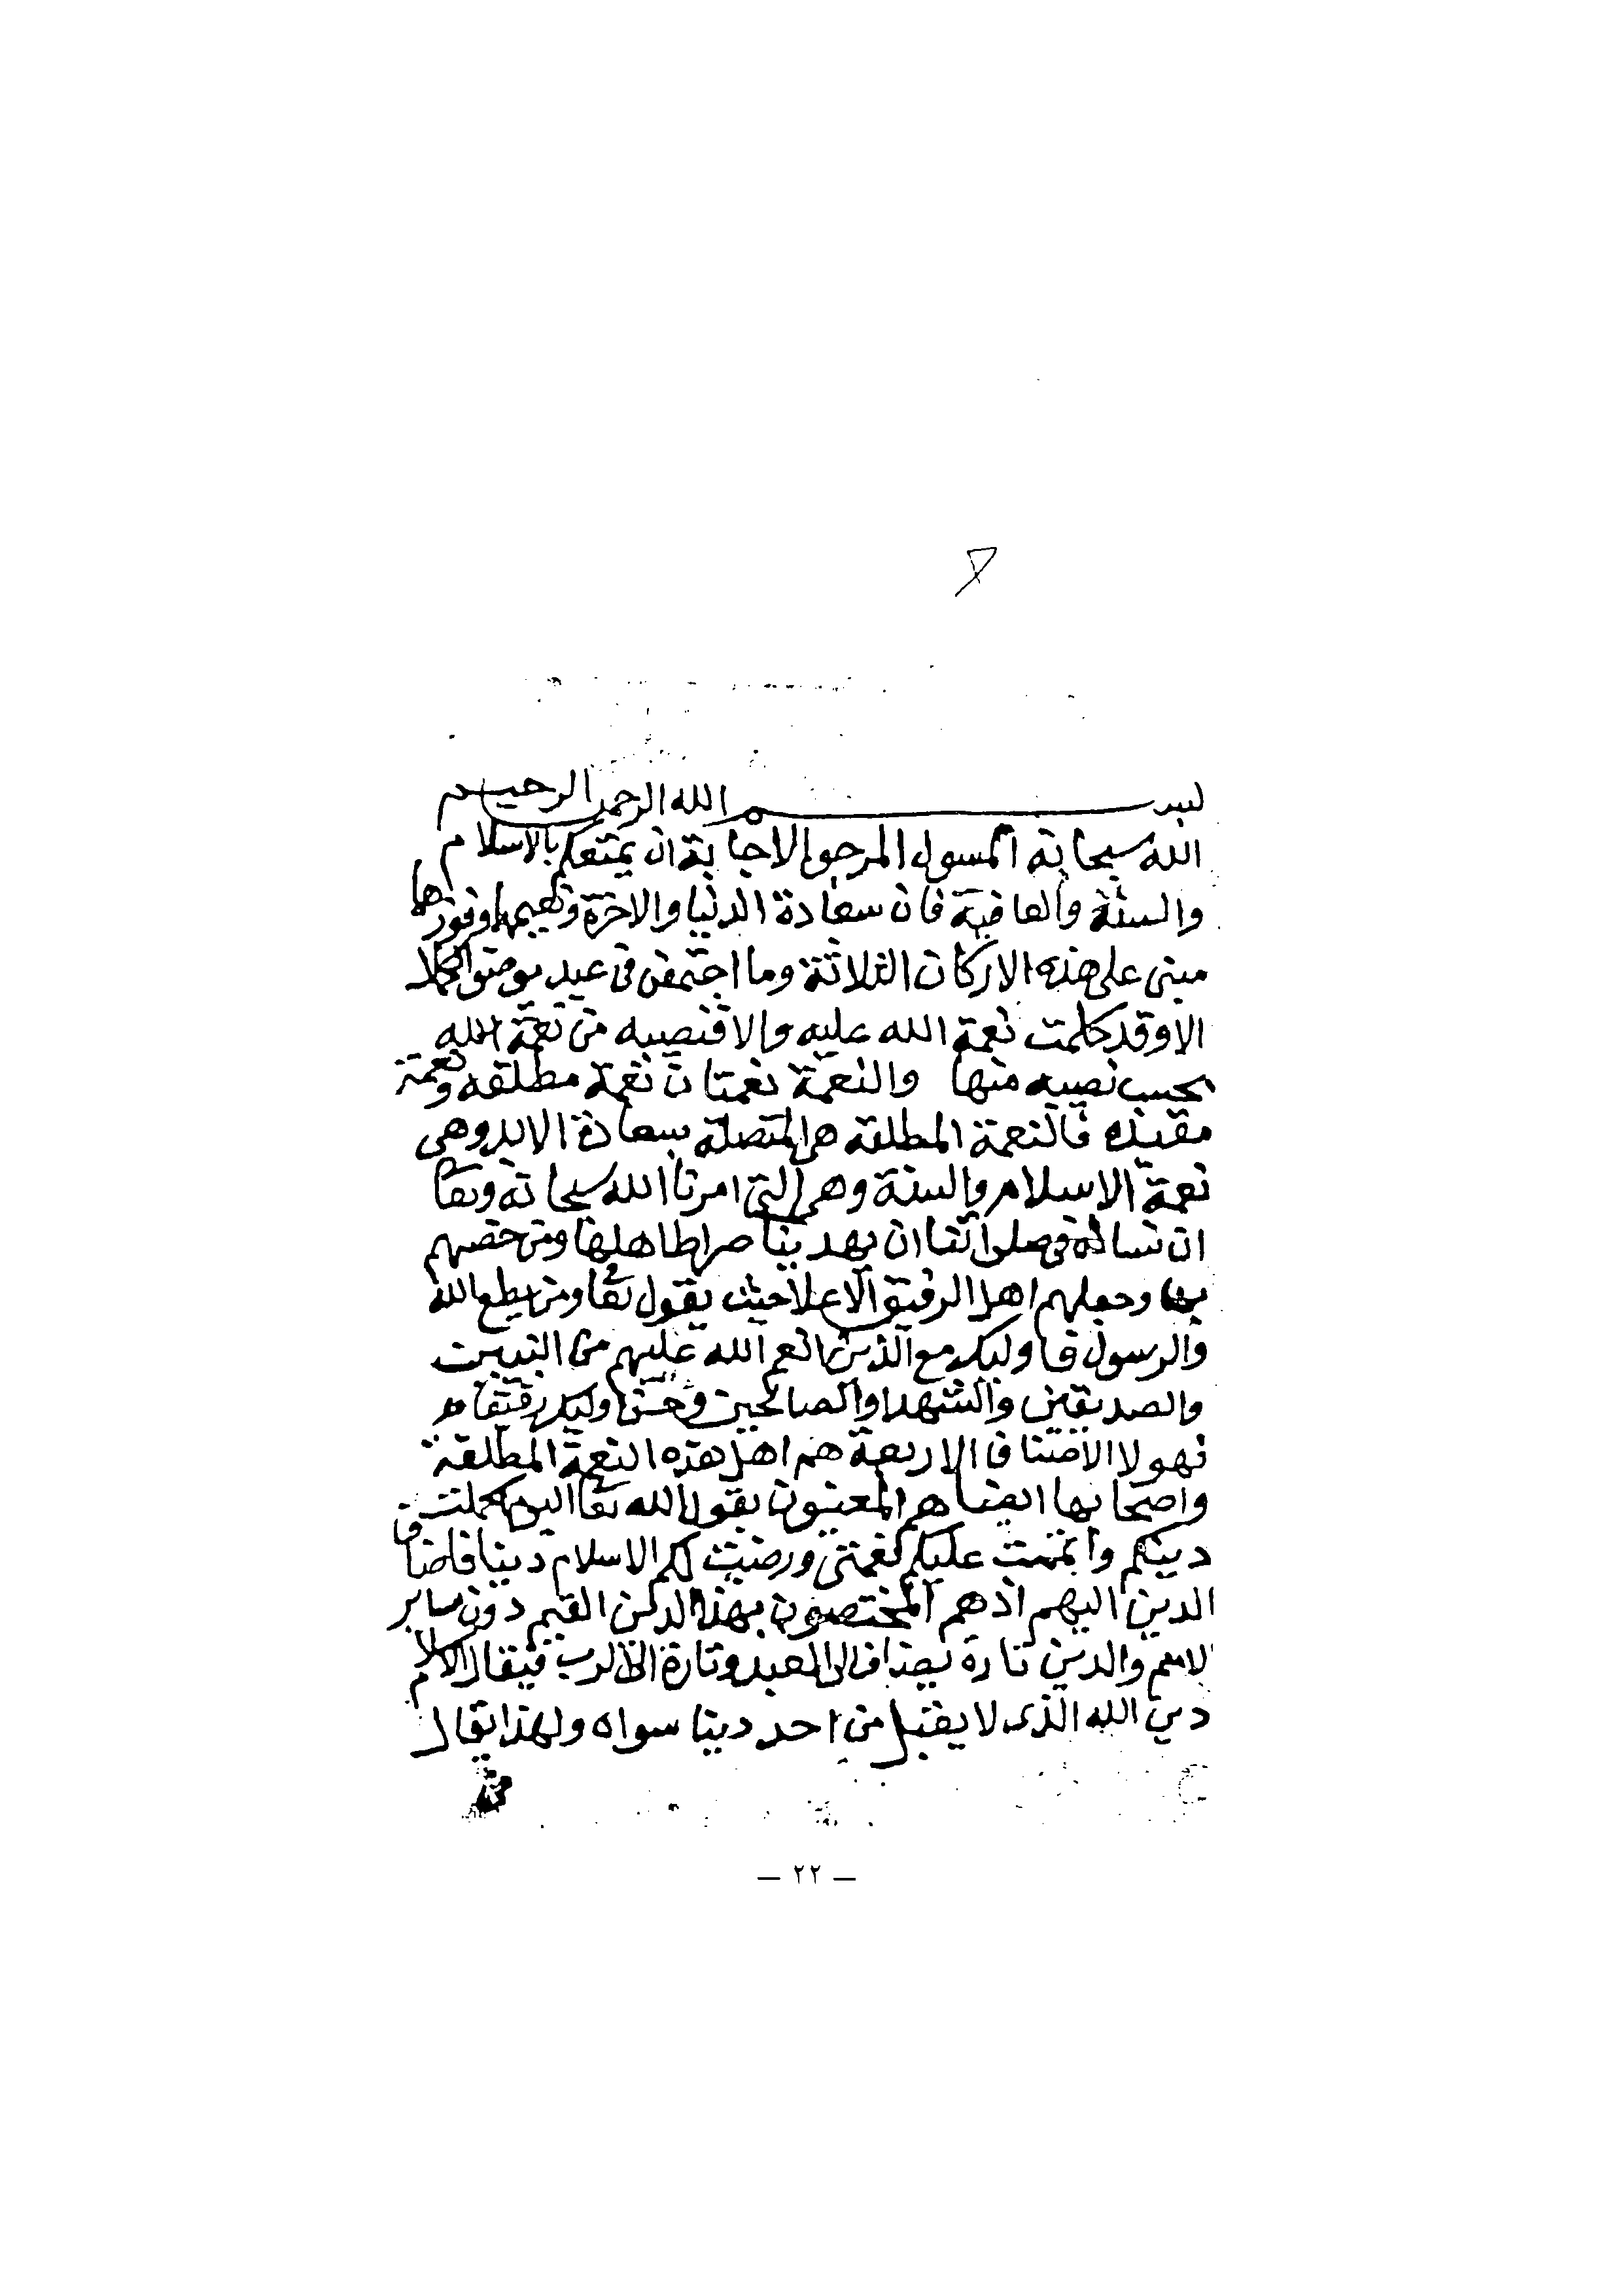 بسم الله الرحمن الرحيم
الله سبحانه المسول المرجو الاجابة ان يمتعكم بالاسلام
والسنة والعافية فان سعادة الدنيا والاخرة ونعيمهما وفوزهما
مبني على هذه الاركان الثلاثة وما اجتمعن في عبد بوصف الكمال
الا وقد كملت نعمة الله عليه والا فنصيبه من نعمة الله
بحسب نصيبه منها والنعمة نعمتان نعمة مطلقه ونعمة
مقيده فالنعمة المطلقه هي المتصلة بسعادة الابد وهي
نعمة الاسلام والسنة وهي التي امرنا الله سبحانه وتعا
ان نساله في صلواتنا ان يهدينا صراط اهلها ومن خصهم
بها وجعلهم اهل الرفيق الاعلا حيث يقول تعا ومن يطع الله
والرسول فاوليك مع الذين انعم الله عليهم من النبيين
والصديقين والشهدا والصالحين وحسن اوليك رفيقا
فهولا الاصناف الاربعة هم اهل هذه النعمة المطلقة
واصحابها ايضا هم المعنيون بقول الله تعا اليوم اكملت
دينكم واتممت عليكم نعمتي ورضيت لكم الاسلام دينا فاضاف
الدين اليهم اذ هم المختصون بهذا الدين القيم دون ساير
الامم والدين تارة يضاف الى العبد وتارة الى الرب فيقال الاسلام
دين الله الذي لا يقبل من احد دينا سواه ولهذا يقال
— ٢٢ —